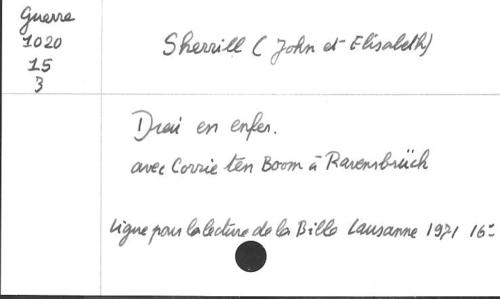 Guerre
1020
15
3
Sherrill (John et Elisabeth)
en enfer.
avec Corrie ten Boom à Ravensbrück
Ligue pour la lecture de la Bible Lausanne 1971 16°